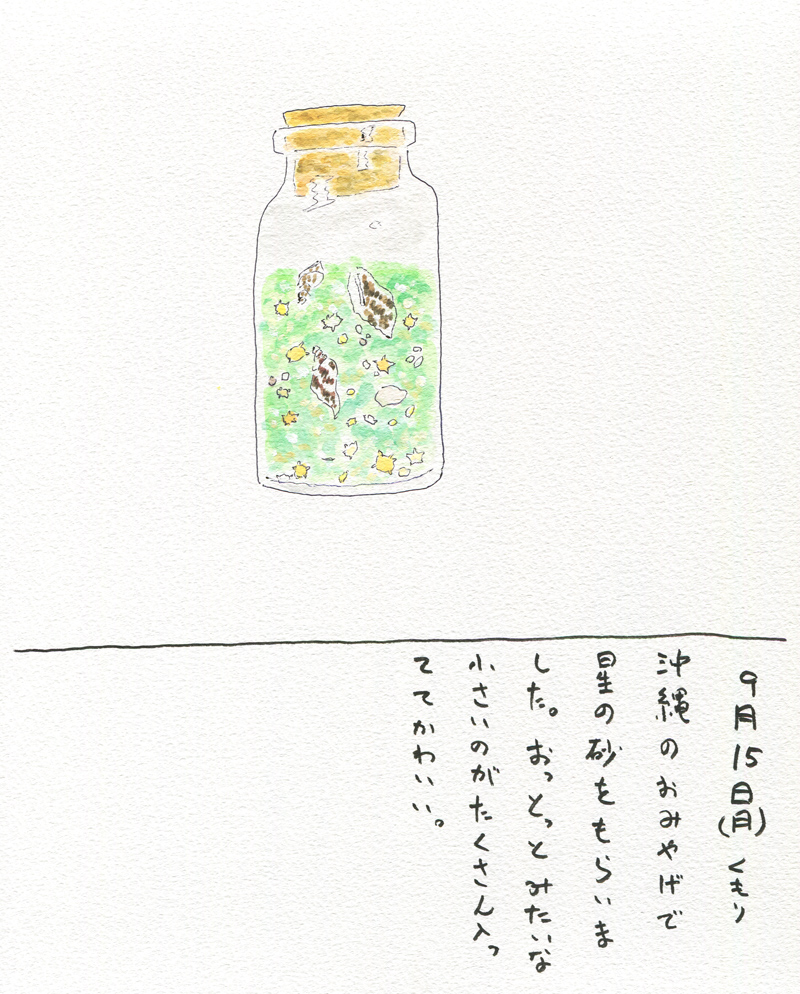 9月15日(月)くもり
沖縄のおみやげで
星の砂をもらいま
した。おっとっとみたいな
小さいのがたくさん入っ
ててかわいい。